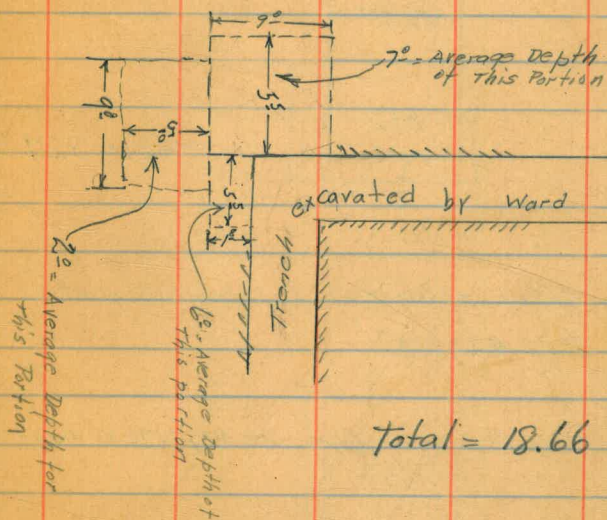 9º
7º = Average Depth
of This Portion
9º
5º
excavated by Ward
Trench
2º = Average Depth for
this Portion
6º = Average Depth of
This portion
Total = 18.66